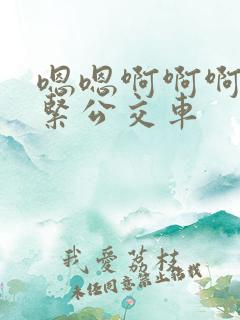 嗯嗯啊啊啊
紧公交车
我爱荔枝
未经同意禁止转载